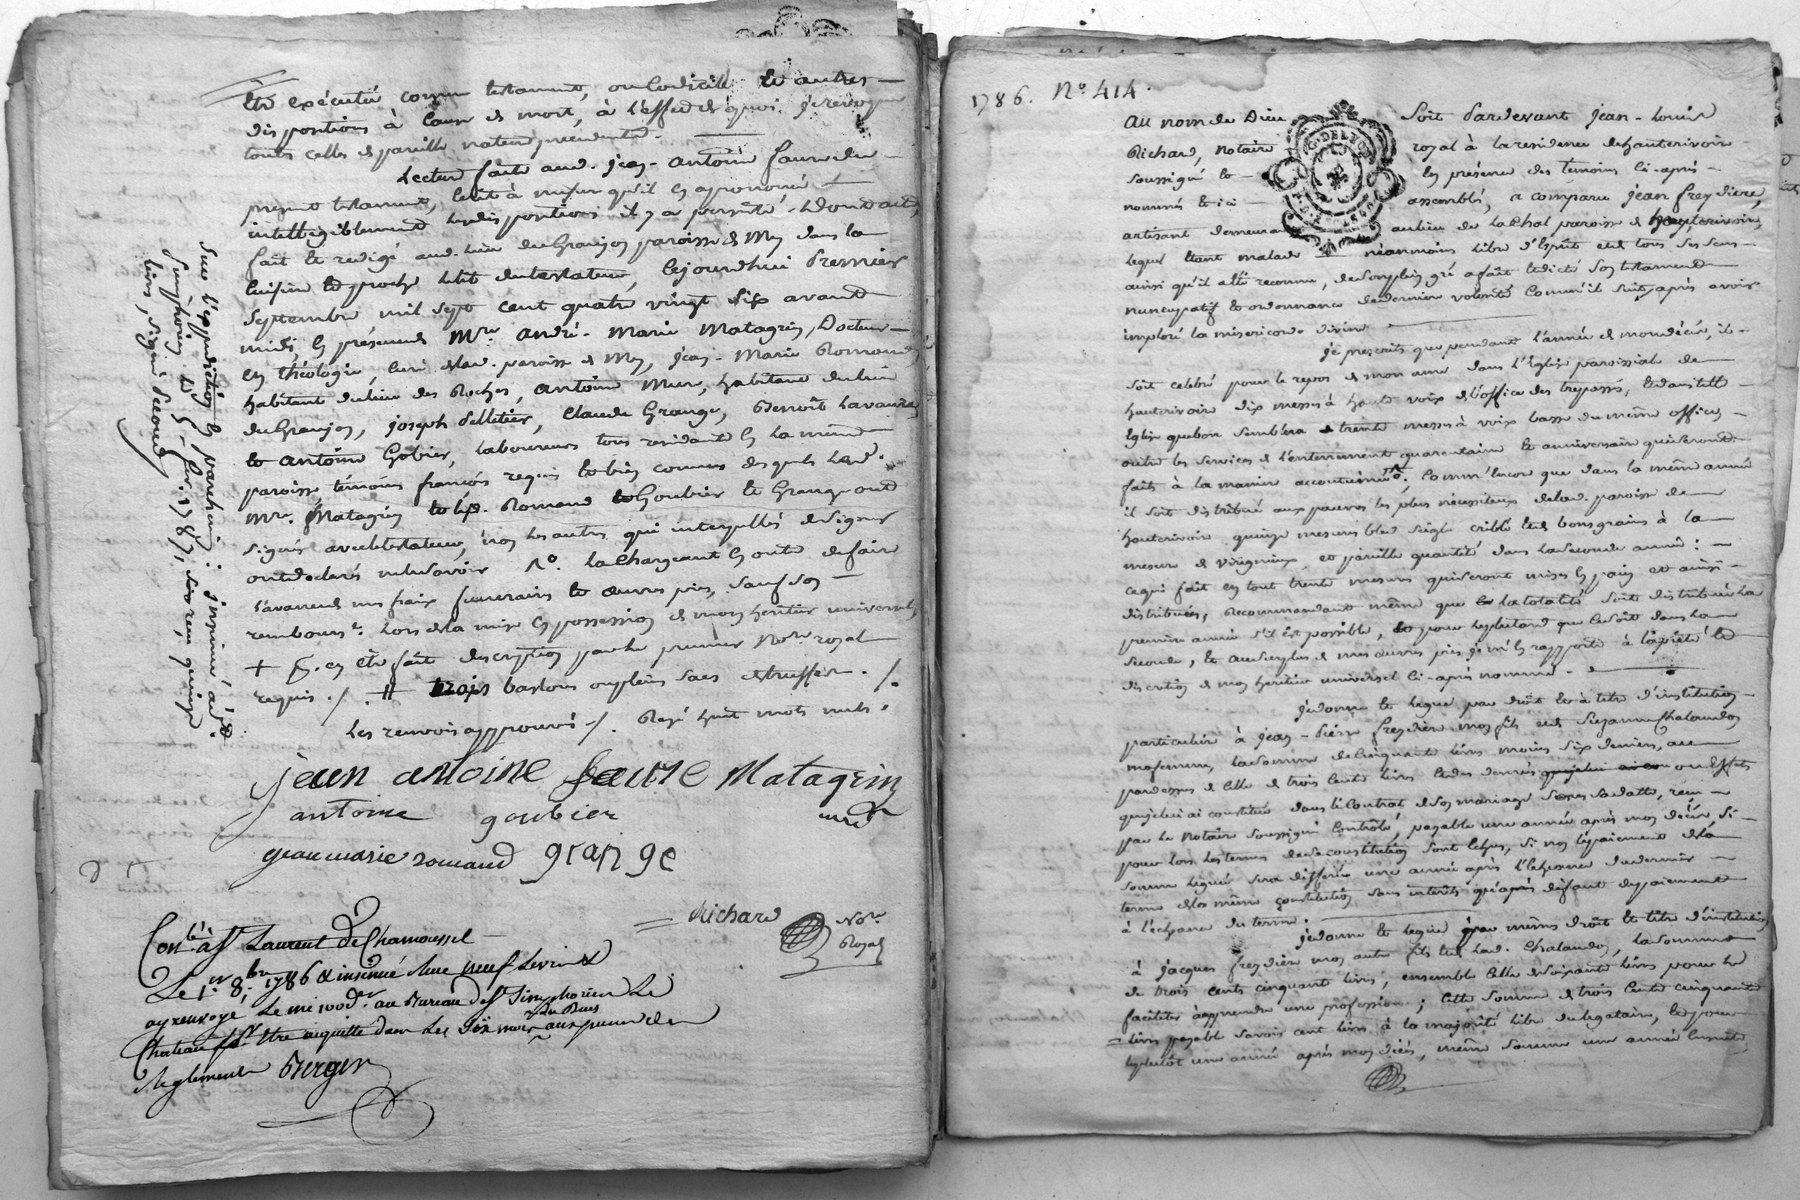 être exécuté comme testament, ou codicille et autres
dispositions à cause de mort, à l'effet de quoi je revoque
toutes celles de pareille nature precedentes.
Lecture faite aud. jean-antoine faure du
present testament, et à mesure qu'il les a prononcé
intelligiblement lesdispositions il y a persisté. Dont acte,
fait et redigé aud. lieu du Granjon paroisse de Mey dans la
cuisine et proche le lit du testateur, cejourdhui Premier
septembre mil sept cent quatre vingt six avant
midi, en présence de Mre. andré-Marie Matagrin, Docteur
en théologie, curé de lad. paroisse de Mey, jean-Marie Romand
habitant du lieu des Roches, antoine Mure, habitant du lieu
du Granjon, joseph Pelletier, Claude Grange, Benoît Lavaure
et antoine Gobier, laboureurs tous residants en la même
paroisse temoins françois requis et bien connus desquels led.
Mre. Matagrin lesd. Romand et Goubier et Grange ont
signés avec le testateur, non les autres qui interpellés de signer
ont declarés ne le savoir No. la chargeant en outre de faire
l'avance de mes fraix funeraires et œuvres pies, sauf son
rembourst. lors de la mise en possession de mon heritier universel,
+ en être fait description par le premier Nore royal
requis ./. # trois bastons ou pleins sacs de truffes ./.
Les renvois approuvés ./. Rayé huit mots nuls.
jean antoine faure Matagrin
antoine goubier curé
jean marie romand grange
Richard Nore
Royal
Conlé à St Laurent de Chamousset
Le 1er 8bre 1786 & insinué Reçu neuf Livres
ay renvoyé Le mi 100dr au Bureau de St Simphorien Le
Chateau pr Etre acquitté dans Les Six mois aux peines de
Du Bues
Reglement Berger
Sur l'expedition en parchemin: insinué à St
Simphorien le 6. fer. 1787, sera reçu quinze
livres, signé Decourt
1786. No. 414.
Au nom de Dieu Soit Pardevant jean-Louis
Richard, Notaire royal à la residence de hauterivoire
soussigné et en présence des temoins ci-après
nommés et ici assemblés, a comparu jean freydiere,
artisant demeurant au lieu de la Chal paroisse de hauterivoire,
lequel étant malade néanmoins libre d'Esprit et de tous ses sens
ainsi qu'il a été reconnu, de son plein gré a fait et dicté son testament
nuncupatif et ordonnance de derniere volonté comm'il suit, après avoir
imploré la misericorde divine
je prescrits que pendant l'année de mon décès, il
soit celebré pour le repos de mon ame dans l'Eglise paroissiale de
hauterivoire dix messes à haute voix de l'office des trepassés, et dans telle
Eglise que bon semblera de trente messes à voix basse du même office,
outre les services de l'enterrement quarantaine et anniversaire qui seront
faits à la maniere accoutumée. Comm'encore que dans la même année
il soit distribué aux pauvres les plus nécessiteux de lad. paroisse de
hauterivoire quinze mesures bled seigle criblé et de bons grains à la
mesure de virigneux, et pareille quantité dans la seconde année:
ce qui fait en tout trente mesures qui seront mises en pain et ainsi
distribuées, recommandant même que la totalité soit distribuée la
premiere année s'il est possible, et pour le plus tard que ce soit dans la
seconde, et au surplus de mes œuvres pies je m'en rapporte à la piété et
discretion de mon heritier universel ci-après nommé.
je donne et legue par droit et à titre d'institution
particuliere à jean-Pierre freydiere mon fils et de Suzanne Chalandon
ma femme, la somme de cinquante livres moins six deniers, au
pardessus de celle de trois cents livres et des denrées ou Effets
que je lui ai constitué dans le contrat de son mariage sous sa datte, reçu
par le Notaire soussigné controlé, payable une année après mon décès si
pour lors les termes de la constitution sont echus, si non le payement de la
somme leguée sera differé une année après l'échéance du dernier
terme de la même constitution sans interêts qu'après défaut de payement
à l'échéance du terme.
je donne et legue par même droit et titre d'institution
à jacques freydiere mon autre fils et de lad. Chalandon, la somme
de trois cents cinquante livres, ensemble celle de soixante livres pour lui
faciliter à apprendre une profession; cette somme de trois cents cinquante
livres payable savoir cent livres à la majorité libre du legataire, et pour
le plutôt une année après mon décès, même somme une année ensuite,